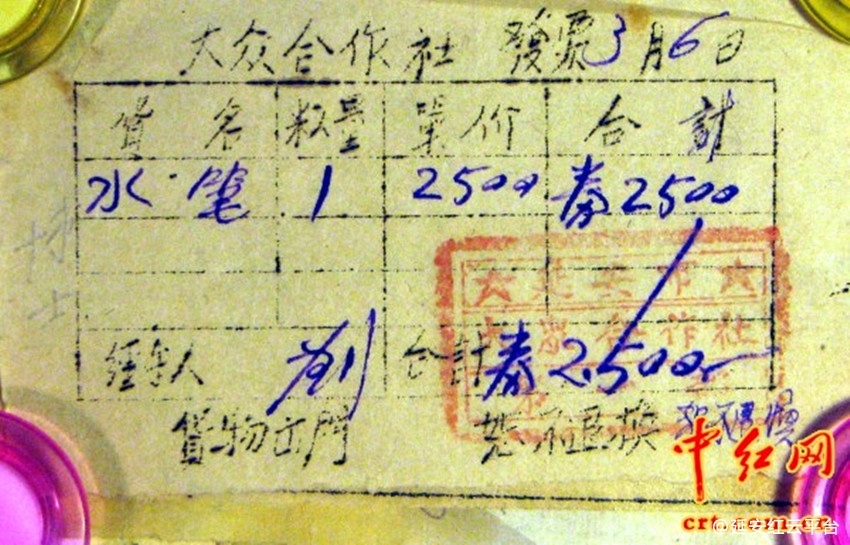 大众合作社 發票3月6日
货名 数量 单价 合計
水筆 1 2500 券2500
大眾合作社
经手人 刘 合計券2,500
貨物出門 恕不退换
中红网
crt.com.cn
@延安红云平台